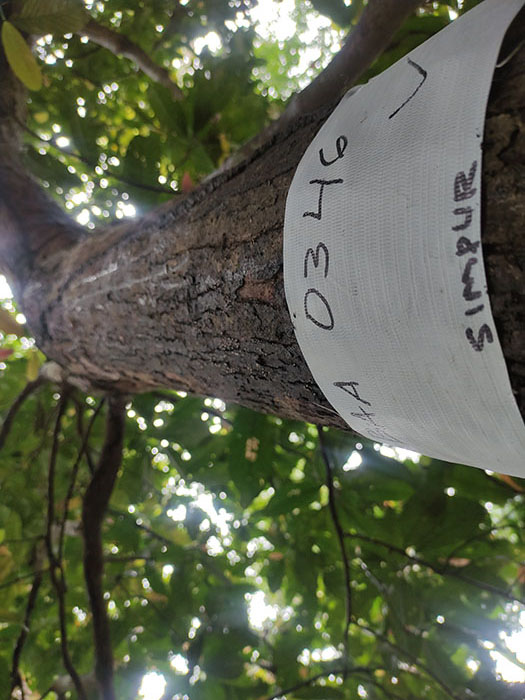 B4A 0346
SIMPUR